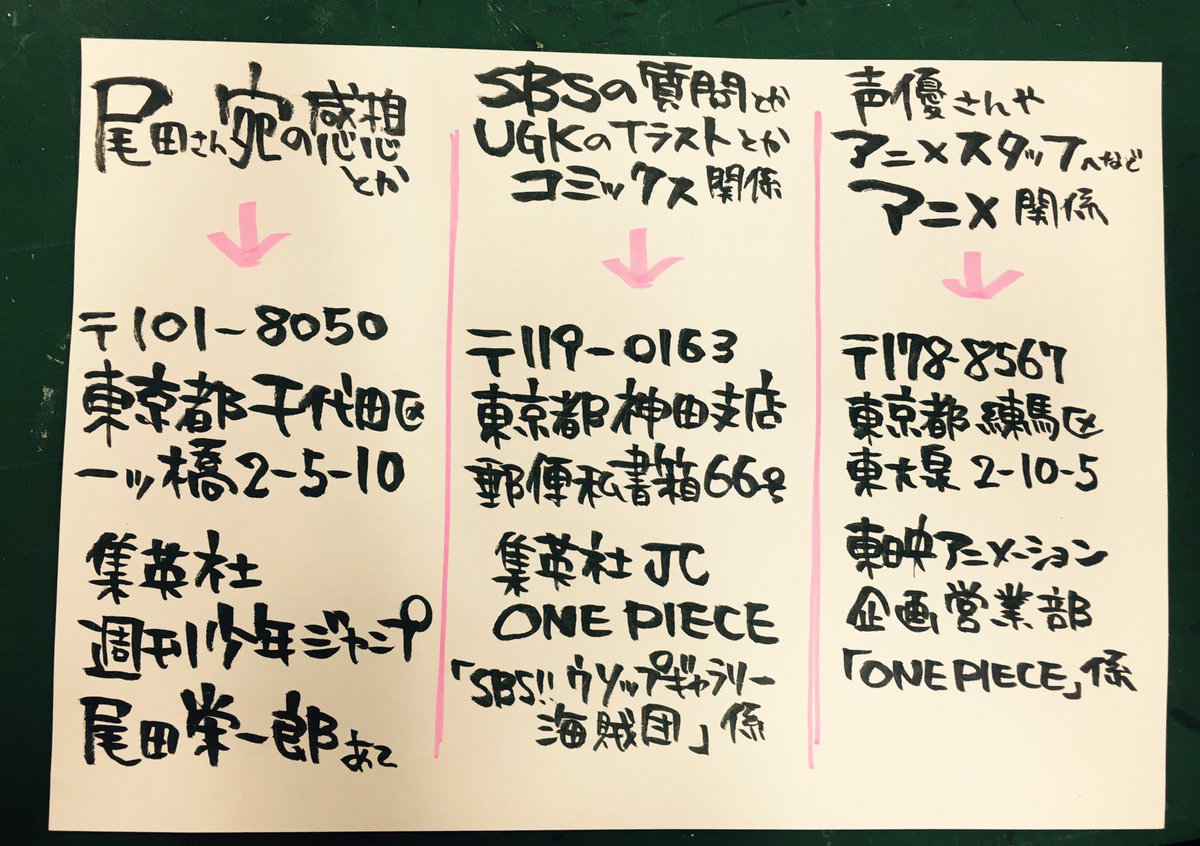 尾田さん宛の感想
とか
〒101-8050
東京都千代田区
一ッ橋2-5-10
集英社
週刊少年ジャンプ
尾田栄一郎あて
SBSの質問とか
UGKのイラストとか
コミックス関係
〒119-0163
東京都神田支店
郵便私書箱66号
集英社JC
ONE PIECE
「SBS!!ウソップギャラリー
海賊団」係
声優さんや
アニメスタッフへなど
アニメ関係
〒178-8567
東京都練馬区
東大泉2-10-5
東映アニメーション
企画営業部
「ONE PIECE」係